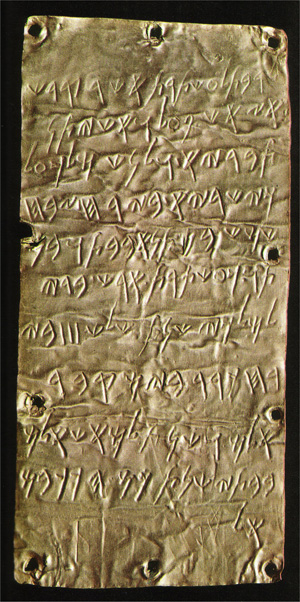 𐤋𐤓𐤁𐤕 𐤋𐤏𐤔𐤕𐤓𐤕 𐤀𐤔𐤓 𐤒𐤃𐤔
𐤀𐤆 𐤀𐤔 𐤐𐤏𐤋 𐤅𐤀𐤔 𐤉𐤕𐤍
𐤕𐤁𐤓𐤉𐤀 𐤅𐤋𐤍𐤔 𐤌𐤋𐤊 𐤏𐤋
𐤊𐤉𐤔𐤓𐤉𐤀 𐤁𐤉𐤓𐤇 𐤆𐤁𐤇
𐤔𐤌𐤔 𐤁𐤌𐤕𐤍 𐤀𐤁𐤁𐤕 𐤅𐤁𐤍
𐤕𐤅 𐤊𐤏𐤔𐤕𐤓𐤕 𐤀𐤓𐤔 𐤁𐤃𐤉
𐤋𐤌𐤋𐤊𐤉 𐤔𐤍𐤕 𐤔𐤋𐤔 𐤛 𐤁𐤉
𐤓𐤇 𐤊𐤓𐤓 𐤁𐤉𐤌 𐤒𐤁𐤓
𐤀𐤋𐤌 𐤅𐤔𐤍𐤕 𐤋𐤌𐤀𐤔 𐤀𐤋𐤌
𐤁𐤁𐤕𐤉 𐤔𐤍𐤕 𐤊𐤌 𐤄𐤊𐤊𐤁𐤌
𐤀𐤋